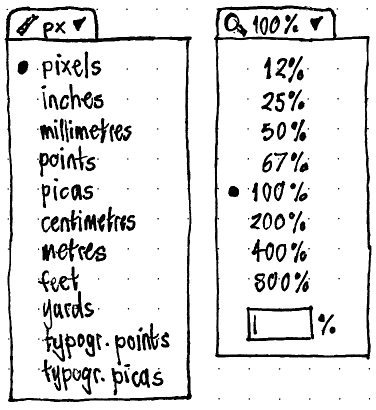 px
pixels
inches
millimetres
points
picas
centimetres
metres
feet
yards
typogr. points
typogr. picas
100%
12%
25%
50%
67%
100%
200%
400%
800%
%